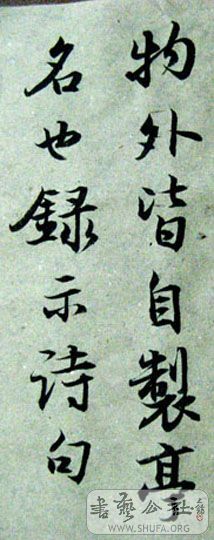 物外皆自製亭
名也録示詩句
書藝公社
WWW.SHUFA.ORG